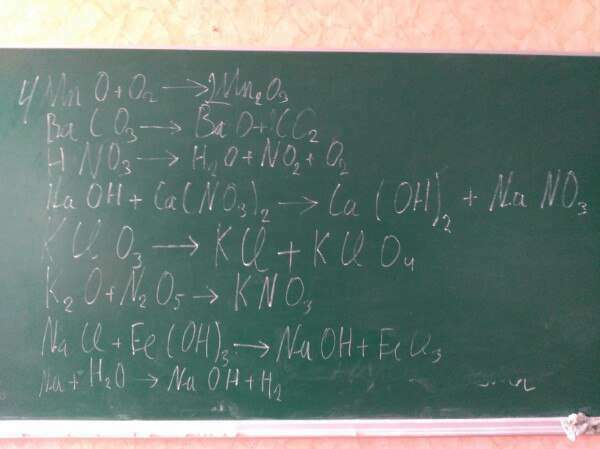 4MnO + O2 → 2Mn2O3
BaCO3 → BaO + CO2
HNO3 → H2O + NO2 + O2
NaOH + Ca(NO3)2 → Ca(OH)2 + NaNO3
KClO3 → KCl + KClO4
K2O + N2O5 → KNO3
NaCl + Fe(OH)3 → NaOH + FeCl3
Na + H2O → NaOH + H2